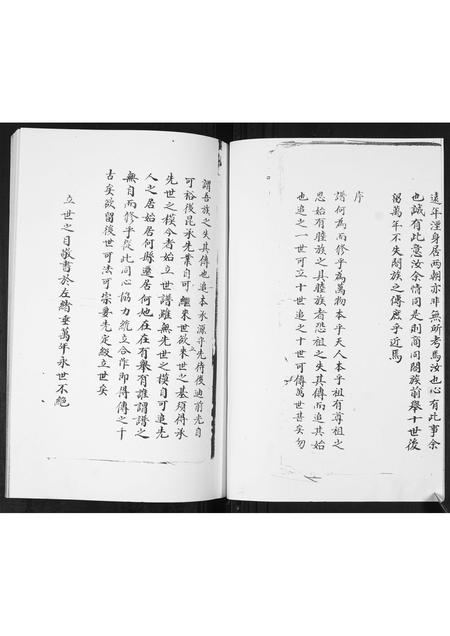 遠年湮身居两朝亦非無所考焉汝也心有此事余
也誠有此意汝余情同是則商同閤族前舉十世後
弼萬年不失閤族之傳庶乎近焉
序
譜何為而修乎為萬物本乎天人本乎祖有尊祖之
思始有睦族之具睦族者恐祖之失其傳而追其始
也追之一世可立十世追之十世可傳萬世甚矣勿
謂吾族之失其傳也追本承源乎先待後迪前光自
可裕後昆承先業自可繼來世欲來世之基須得承
先世之模今者始立世譜雖無先世之模自可追先
人之居始居何縣遷居何地在在有舉有誰謂譜之
無自而修乎從此同心協力統立合作即得傳之千
古矣欲留後世可法可宗要先定級立世矣
立世之目敬書於左綿垂萬年永世不絕